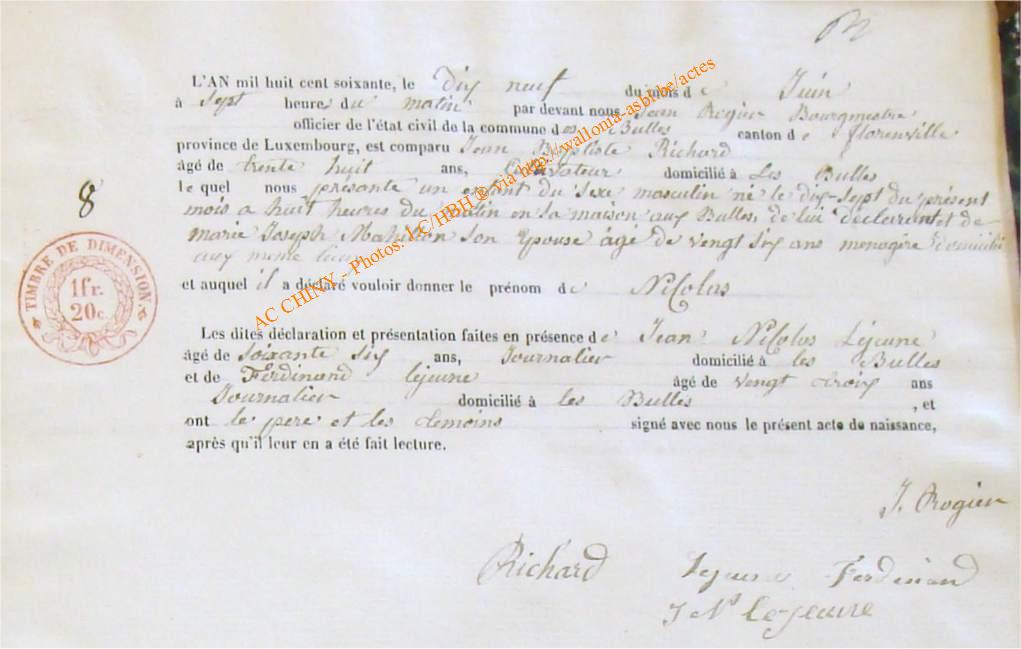 L'AN mil huit cent soixante, le Dix neuf du mois de Juin
à Sept heure du matin par devant nous Jean Rogier Bourgmestre
officier de l'état civil de la commune des Bulles canton de florenville
province de Luxembourg, est comparu Jean Baptiste Richard
âgé de trente huit ans, Cultivateur domicilié à Les Bulles
le quel nous présente un enfant du sexe masculin né le dix-sept du présent
mois a huit heures du matin en sa maison aux Bulles de lui déclarant et de
marie Joseph Mahillon son Epouse âgé de vengt six ans menagère domicilié
aux meme lieu
et auquel il a déclaré vouloir donner le prénom de Nicolas
Les dites déclaration et présentation faites en présence de Jean Nicolas Léjeune
âgé de Soixante Six ans, Journalier domicilié à les Bulles
et de Ferdinand léjeune âgé de vengt trois ans
Journalier domicilié à les Bulles , et
ont le pere et les temoins signé avec nous le présent acte de naissance,
après qu'il leur en a été fait lecture.
8
TIMBRE DE DIMENSION.
1fr.
20c.
AC CHINY - Photos: LC/HBH® via http://wallonia-asbl.be/actes
J. Rogier
Richard Lejeune Ferdinand
J N Le-jeune